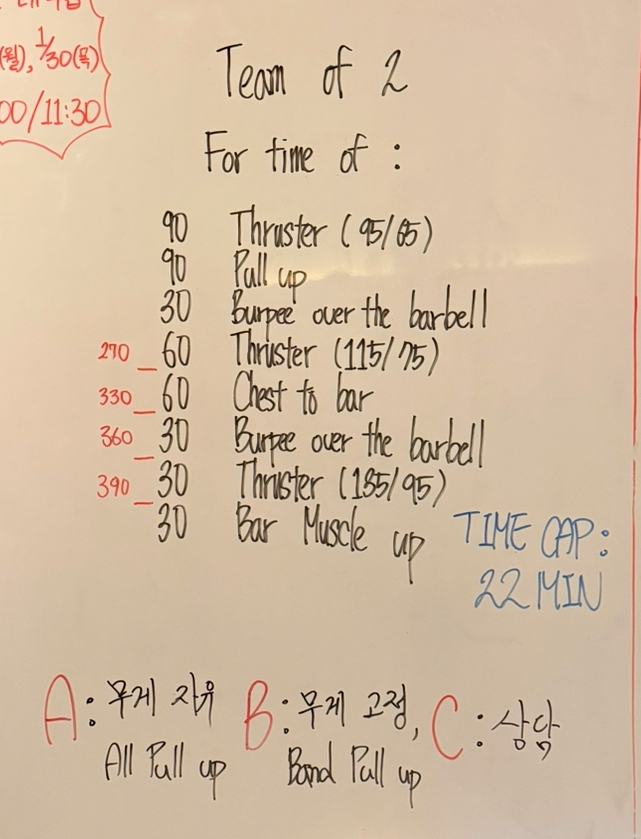 (월), 1/30(목)
00/11:30
Team of 2
For time of :
90 Thruster (95/65)
90 Pull up
30 Burpee over the barbell
270 _ 60 Thruster (115/75)
330 _ 60 Chest to bar
360 _ 30 Burpee over the barbell
390 _ 30 Thruster (135/95)
30 Bar Muscle up
TIME CAP:
22 MIN
A: 무게 자유 B: 무게 고정, C: 상담
All Pull up Band Pull up